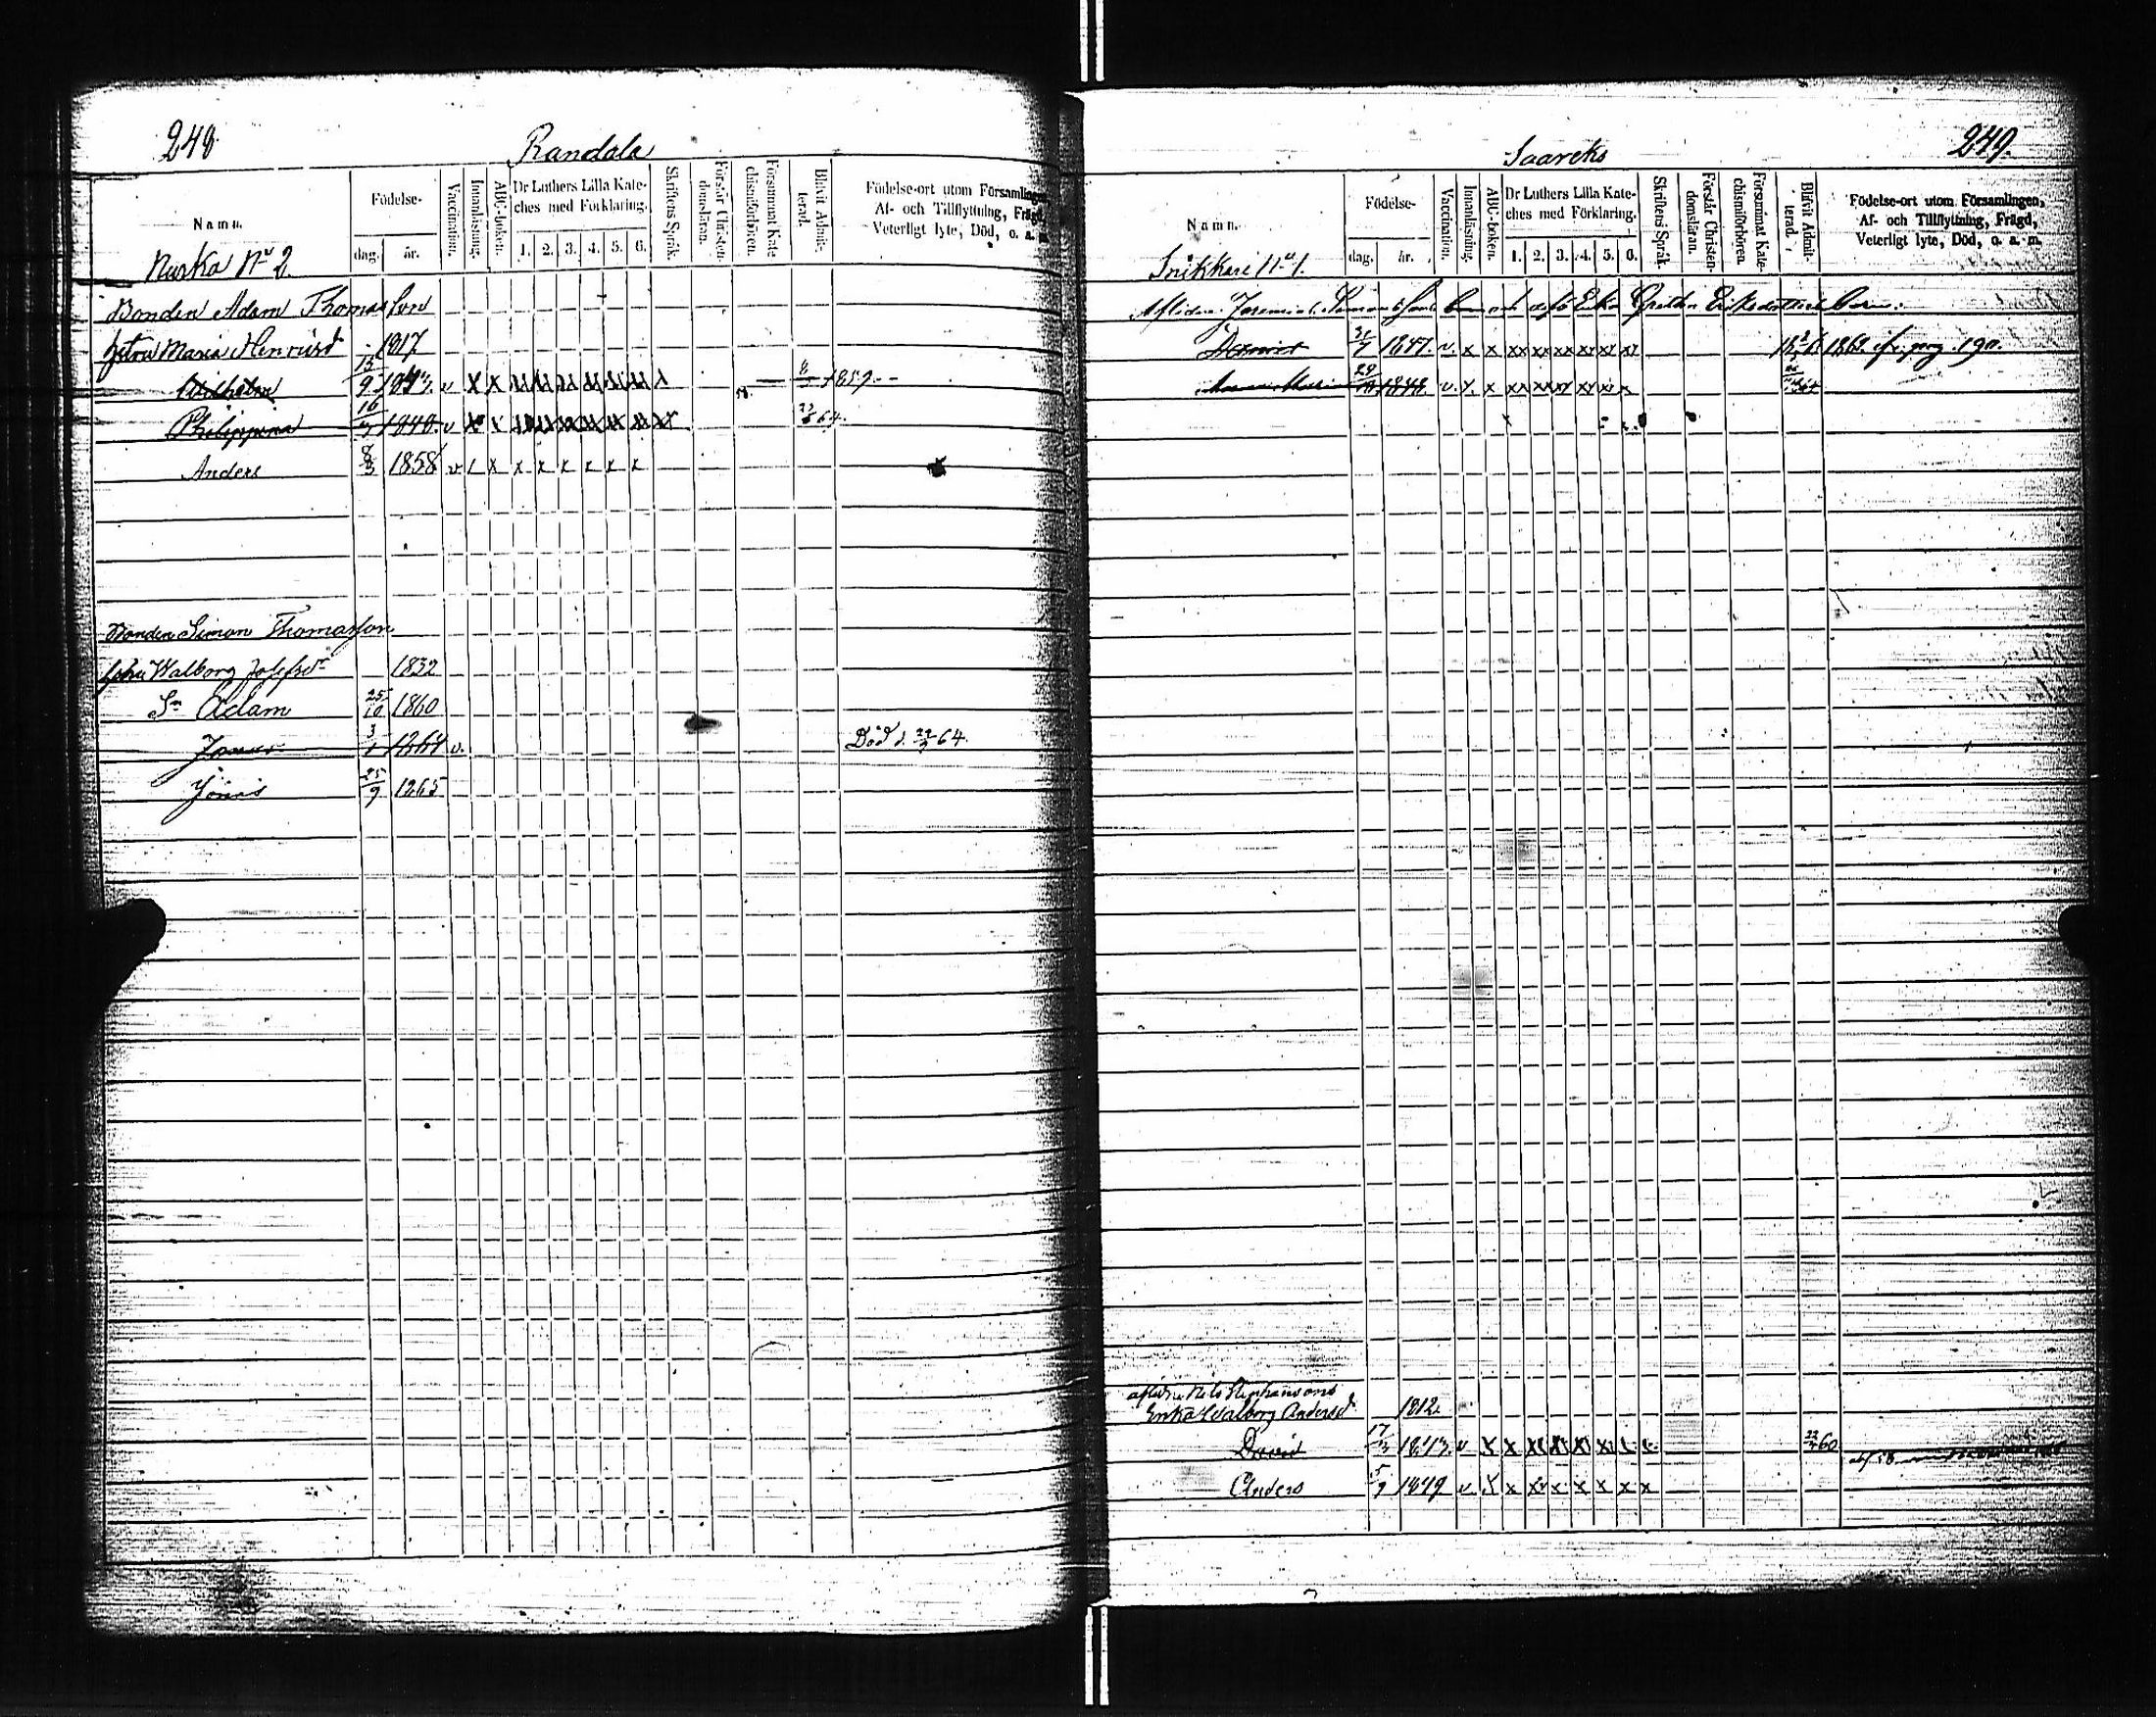 248
Randala
Namn.
Födelse-
dag.
år.
Vaccination.
Innanläsning.
ABC-boken.
Dr Luthers Lilla Kate-
ches med Förklaring.
1. 2. 3. 4. 5. 6.
Skriftens Språk.
Förstår Christen-
domsläran.
Försummat Kate-
chismiförhören.
Blifvit Admit-
terad.
Födelse-ort utom Församlingen,
Af- och Tillflyttning, Frägd,
Veterligt lyte, Död, o. a. m.
Nurka No 2
Bonden Adam Thomasson
hstru Maria Henricsd 1817
Wilhelm 15/9 1843 v x x 1859
Philippina 16 1848 v 64
Anders 8/3 1858 v x x x x x x x
Bonden Simon Thomasson
hstru Walborg Josefsdr 1832
Sn Adam 25/10 1860
3/1 1864 v. Död d. 22 64.
Jonas 25/9 1865
249.
Saareks
Namn.
Födelse-
dag.
år.
Vaccination.
Innanläsning.
ABC-boken.
Dr Luthers Lilla Kate-
ches med Förklaring.
1. 2. 3. 4. 5. 6.
Skriftens Språk.
Förstår Christen-
domsläran.
Försummat Kate-
chismiförhören.
Blifvit Admit-
terad.
Födelse-ort utom Församlingen,
Af- och Tillflyttning, Frägd,
Veterligt lyte, Död, o. a. m.
Snikkari No 1.
Aflidne Jeremias Enka Eriksdotters barn:
1847. v. x x xx xx xx xx xx pag. 190.
29 1848. v. x. x
Aflidne Nils Stephansons
Enka Walborg Andersd. 1812.
David 17 1843. v x x 60
Anders 5/9 1849 v x x x x x x x